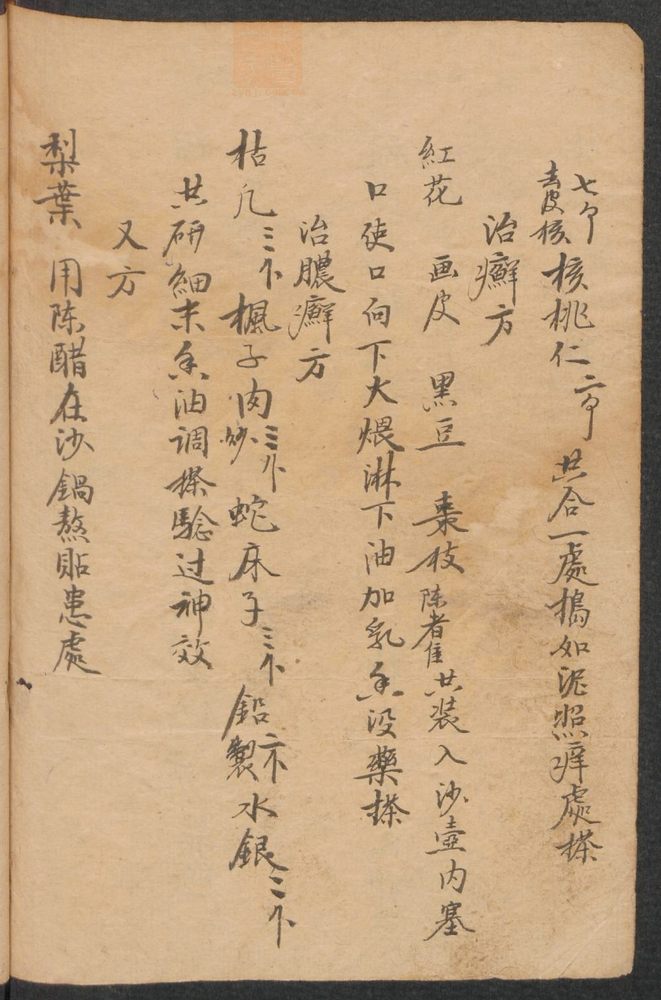 七个去皮核核桃仁二个共合一處搗如泥照痒處搽
治癬方
紅花 画皮 黑豆 棗枝陈者佳共装入沙壶内塞
口使口向下大煨淋下油加乳香没藥搽
治膿癬方
枯凡三卜楓子肉炒三卜蛇床子三卜鉛製水銀二卜
共研細末香油调搽驗过神效
又方
梨葉 用陈醋在沙鍋熬貼患處